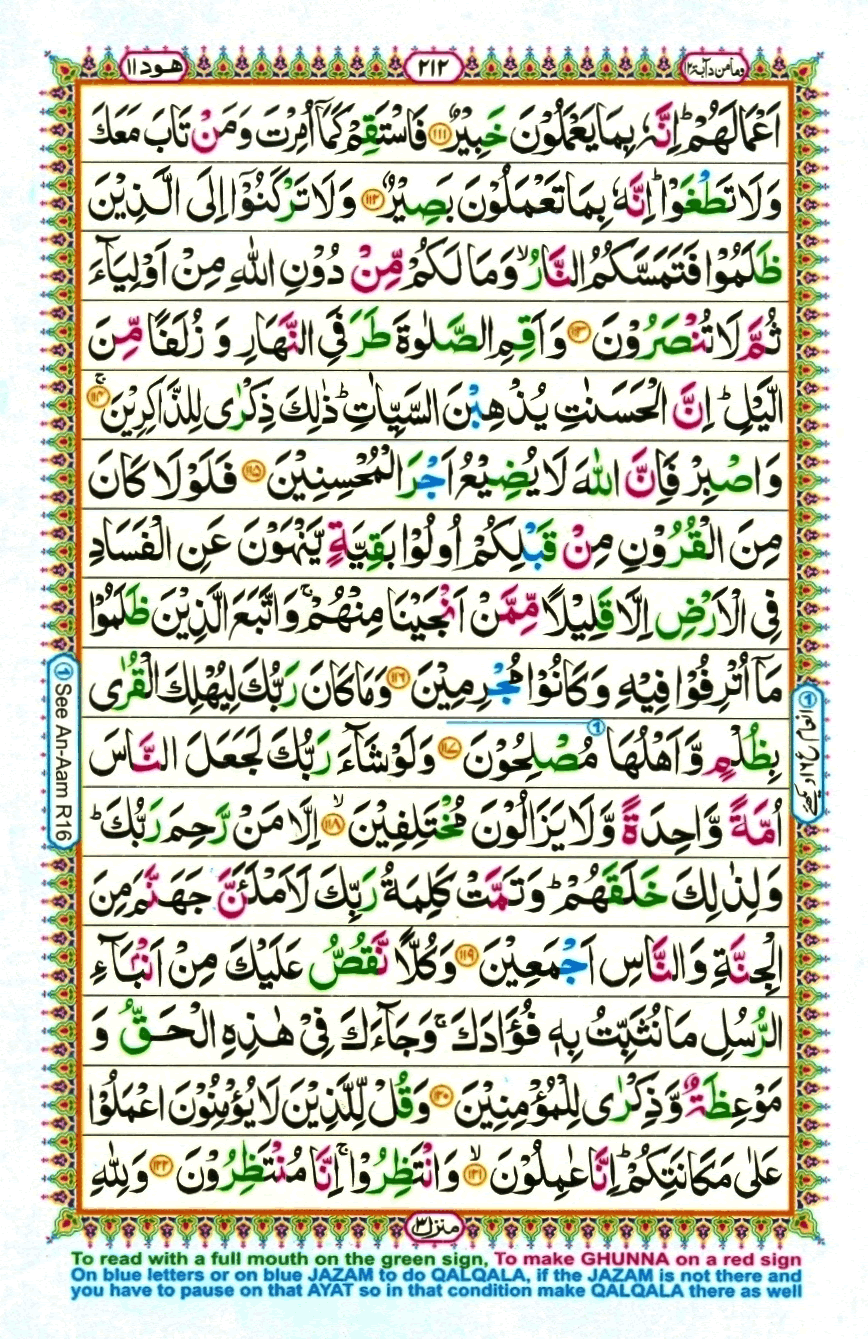 وما من دآبة ١٢
٢١٢
هود ١١
اَعْمَالَهُمْ ؕ اِنَّهٗ بِمَا يَعْمَلُوْنَ خَبِيْرٌ ۝۱۱۱ فَاسْتَقِمْ كَمَاۤ اُمِرْتَ وَمَنْ تَابَ مَعَكَ
وَلَا تَطْغَوْا ؕ اِنَّهٗ بِمَا تَعْمَلُوْنَ بَصِيْرٌ ۝۱۱۲ وَلَا تَرْكَنُوْۤا اِلَى الَّذِيْنَ
ظَلَمُوْا فَتَمَسَّكُمُ النَّارُ ۙ وَمَا لَكُمْ مِّنْ دُوْنِ اللّٰهِ مِنْ اَوْلِيَآءَ
ثُمَّ لَا تُنْصَرُوْنَ ۝۱۱۳ وَاَقِمِ الصَّلٰوةَ طَرَفَيِ النَّهَارِ وَ زُلَفًا مِّنَ
الَّيْلِ ؕ اِنَّ الْحَسَنٰتِ يُذْهِبْنَ السَّيِّاٰتِ ؕ ذٰلِكَ ذِكْرٰى لِلذَّاكِرِيْنَ ۚ۝۱۱۴
وَاصْبِرْ فَاِنَّ اللّٰهَ لَا يُضِيْعُ اَجْرَ الْمُحْسِنِيْنَ ۝۱۱۵ فَلَوْلَا كَانَ
مِنَ الْقُرُوْنِ مِنْ قَبْلِكُمْ اُولُوْا بَقِيَّةٍ يَّنْهَوْنَ عَنِ الْفَسَادِ
فِى الْاَرْضِ اِلَّا قَلِيْلًا مِّمَّنْ اَنْجَيْنَا مِنْهُمْ ۚ وَاتَّبَعَ الَّذِيْنَ ظَلَمُوْا
مَاۤ اُتْرِفُوْا فِيْهِ وَكَانُوْا مُجْرِمِيْنَ ۝۱۱۶ وَمَا كَانَ رَبُّكَ لِيُهْلِكَ الْقُرٰى
بِظُلْمٍ وَّاَهْلُهَا مُصْلِحُوْنَ ۝۱۱۷ وَلَوْ شَآءَ رَبُّكَ لَجَعَلَ النَّاسَ
اُمَّةً وَّاحِدَةً وَّلَا يَزَالُوْنَ مُخْتَلِفِيْنَ ۙ۝۱۱۸ اِلَّا مَنْ رَّحِمَ رَبُّكَ ؕ
وَلِذٰلِكَ خَلَقَهُمْ ؕ وَتَمَّتْ كَلِمَةُ رَبِّكَ لَاَمْلَئَنَّ جَهَنَّمَ مِنَ
الْجِنَّةِ وَالنَّاسِ اَجْمَعِيْنَ ۝۱۱۹ وَكُلًّا نَّقُصُّ عَلَيْكَ مِنْ اَنْۢبَآءِ
الرُّسُلِ مَا نُثَبِّتُ بِهٖ فُؤَادَكَ ۚ وَجَآءَكَ فِيْ هٰذِهِ الْحَقُّ وَ
مَوْعِظَةٌ وَّذِكْرٰى لِلْمُؤْمِنِيْنَ ۝۱۲۰ وَقُلْ لِّلَّذِيْنَ لَا يُؤْمِنُوْنَ اعْمَلُوْا
عَلٰى مَكَانَتِكُمْ ؕ اِنَّا عٰمِلُوْنَ ۙ۝۱۲۱ وَانْتَظِرُوْا ۚ اِنَّا مُنْتَظِرُوْنَ ۝۱۲۲ وَلِلّٰهِ
۱ انعام ع ۱۶ دیکھئے
① See An-Aam R16
منزل ۳
To read with a full mouth on the green sign, To make GHUNNA on a red sign
On blue letters or on blue JAZAM to do QALQALA, if the JAZAM is not there and
you have to pause on that AYAT so in that condition make QALQALA there as well